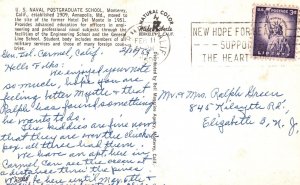 U. S. NAVAL POSTGRADUATE SCHOOL, Monterey,
Calif., established 1909, Annapolis, Md., moved to
the site of the former Hotel Del Monte in 1951.
Provides advanced education for naval officers in
functional and broad subjects through the
facilities of the Engineering School and the General
Line School. Student body includes members of all
military services and those of many foreign
A NATURAL COLOR
NEW HOPE FOR
SUPPORT
THE HEART
U.S. POSTAGE
3¢
Carmel, Calif
Hello Folks:
We enjoyed your note
so much, hope you are
feeling better Myrtle & that
Ralph has found something
he wants to do.
The kiddies are fine now
that they are over the chicken
pox. all three had them.
We have an apt. here in
Carmel. Can see the ocean at
a distance thru the pines
We'll be here until May 4th &
Mr & Mrs. Ralph Green
845 Kilsyth Rd.
Elizabeth 3, N. J